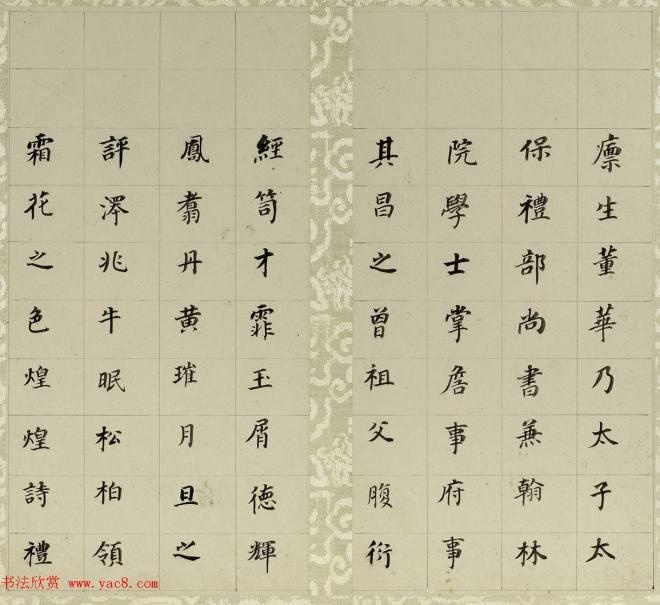 癝生董華乃太子太
保禮部尚書兼翰林
院學士掌詹事府事
其昌之曾祖父腹衍
經笥才霏玉屑德輝
鳳翥丹黃璀月旦之
評澤兆牛眠松柏領
霜花之色煌煌詩禮
书法欣赏 www.yac8.com